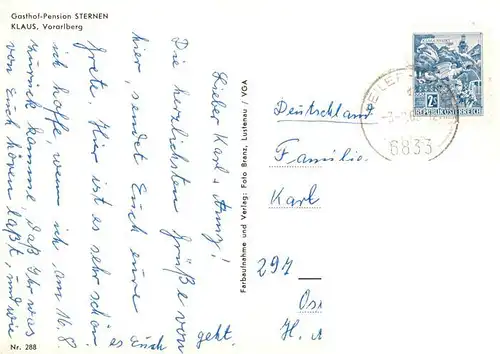 Gasthof-Pension STERNEN
KLAUS, Vorarlberg
Lieber Karl u.
Die herzlichsten Grüße von
hier, sendet Euch eure
Grete. Hier ist es sehr schön
ich hoffe, wenn ich am 16.8.
zurück komme, daß Ihr was
von Euch hören laßt, und wie
es Euch geht.
Nr. 288
Farbaufnahme und Verlag: Foto Branz, Lustenau / VGA
2S
REPUBLIK ÖSTERREICH
6833
Deutschland
Familie
Karl
297